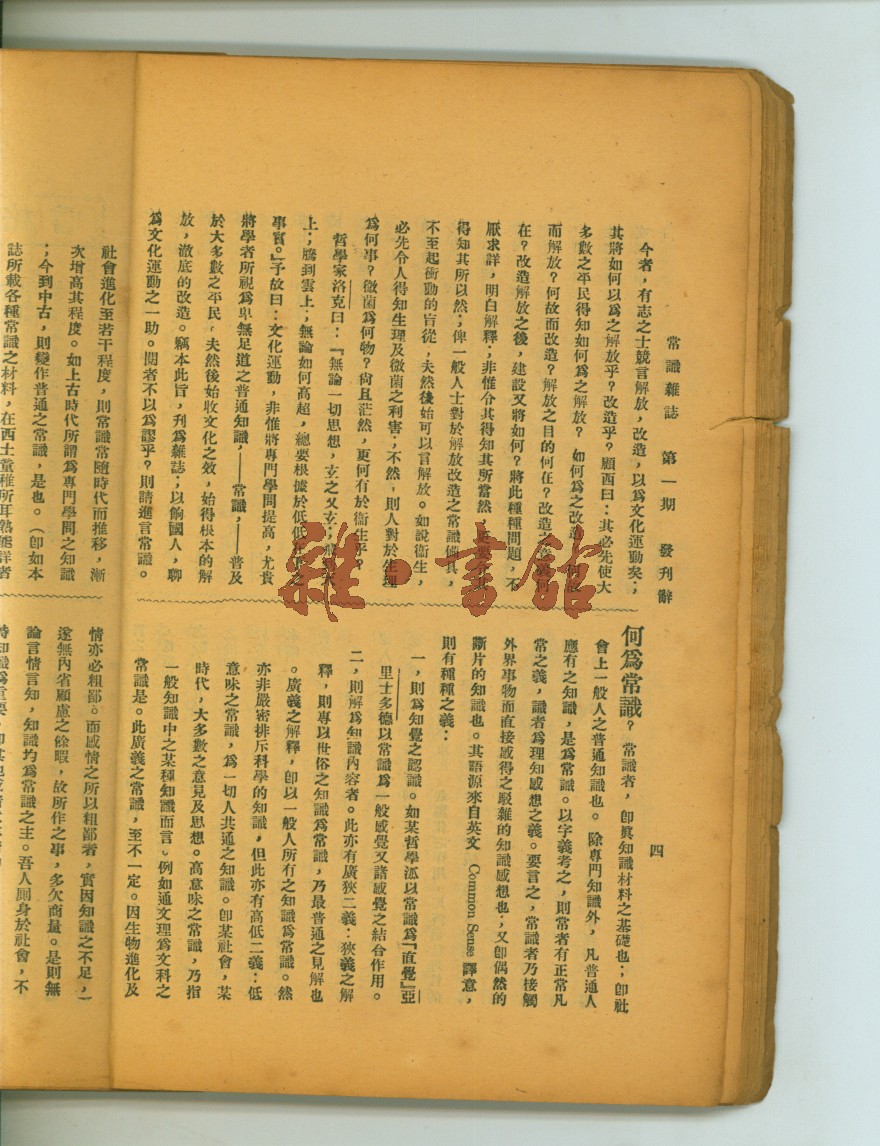 常識雜誌　第一期　發刊辭
四
今者，有志之士競言解放，改造，以爲文化運動矣；
其將如何以爲之解放乎？改造乎？願西曰：其必先使大
多數之平民得知如何爲之解放？如何爲之改造
而解放？何故而改造？解放之目的何在？改造之
在？改造解放之後，建設又將如何？將此種種問題，不
厭求詳，明白解釋；非惟令其得知其所當然，
得知其所以然；俾一般人士對於解放改造之常識備具，
不至起衝動的盲從，夫然後始可以言解放。如說衞生，
必先令人得知生理及微菌之利害；不然，則人對於生理
爲何事？微菌爲何物？尙且茫然，更何有於衞生乎？
哲學家洛克曰：『無論一切思想，玄之又玄；
上；騰到雲上；無論如何高超，總要根據於低低
事實。』予故曰：文化運動，非惟將專門學問提高，尤貴
將學者所視爲卑無足道之普通知識，——常識，——普及
於大多數之平民，夫然後始收文化之效，始得根本的解
放，澈底的改造。竊本此旨，刊爲雜誌；以餉國人，聊
爲文化運動之一助。閱者不以爲謬乎？則請進言常識。
何爲常識？常識者，卽眞知識材料之基礎也；卽社
會上一般人之普通知識也。除專門知識外，凡普通人
應有之知識，是爲常識。以字義考之，則常者有正常凡
常之義，識者爲理知感想之義。要言之，常識者乃接觸
外界事物而直接感得之駁雜的知識感想也；又卽偶然的
斷片的知識也。其語源來自英文 Common Sense 譯意，
則有種種之義：
一，則爲知覺之認識。如某哲學派以常識爲『直覺』亞
里士多德以常識爲一般感覺又諸感覺之結合作用。
二，則解爲知識內容者。此亦有廣狹二義：狹義之解
釋，則專以世俗之知識爲常識，乃最普通之見解也
。廣義之解釋，卽以一般人所有之知識爲常識。然
亦非嚴密排斥科學的知識，但此亦有高低二義：低
意味之常識，爲一切人共通之知識。卽某社會，某
時代，大多數之意見及思想。高意味之常識，乃指
一般知識中之某種知識而言。例如通文理爲文科之
常識是。此廣義之常識，至不一定。因生物進化及
社會進化至若干程度，則常識常隨時代而推移，漸
次增高其程度。如上古時代所謂爲專門學問之知識
；今到中古，則變作普通之常識，是也。（卽如本
誌所載各種常識之材料，在西土童稚所耳熟能詳者
情亦必粗鄙。而感情之所以粗鄙者，實因知識之不足，一
遂無內省顧慮之餘暇，故所作之事，多欠商量。是則無
論言情言知，知識均爲常識之主。吾人厠身於社會，不
雜·書館